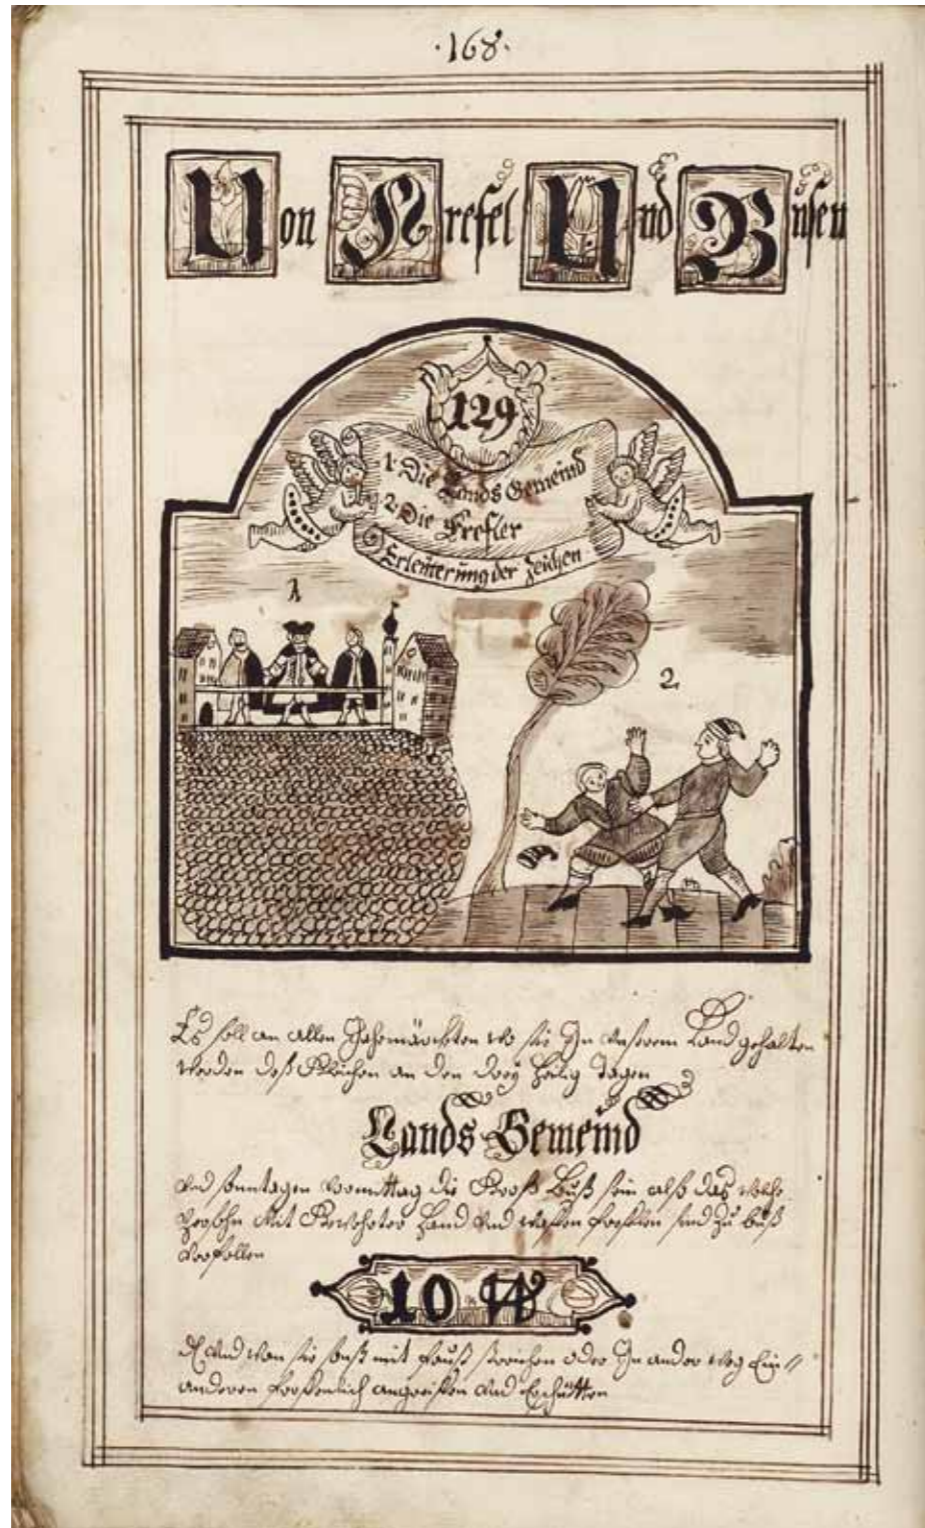 ·168·
Von Frefel Und Busen
129
1. Die Lands Gemeind
2. Die Frefler
Erleüterung der Zeichen
1
2
Es soll an allen Jahrmärckten wo sie Jn unserem Land gehalten
werden deß Gleichen an den drey heilig Tagen
Lands Gemeind
und sonntagen vormittag die Groß Buß sein also das welche
Persohn mit Gewehrter hand und waffen freflen sind zu buß
verfallen
10
und wan sie sonst mit faust streichen oder Jn ander weg Ein//
anderen freffenlich angreiffen und